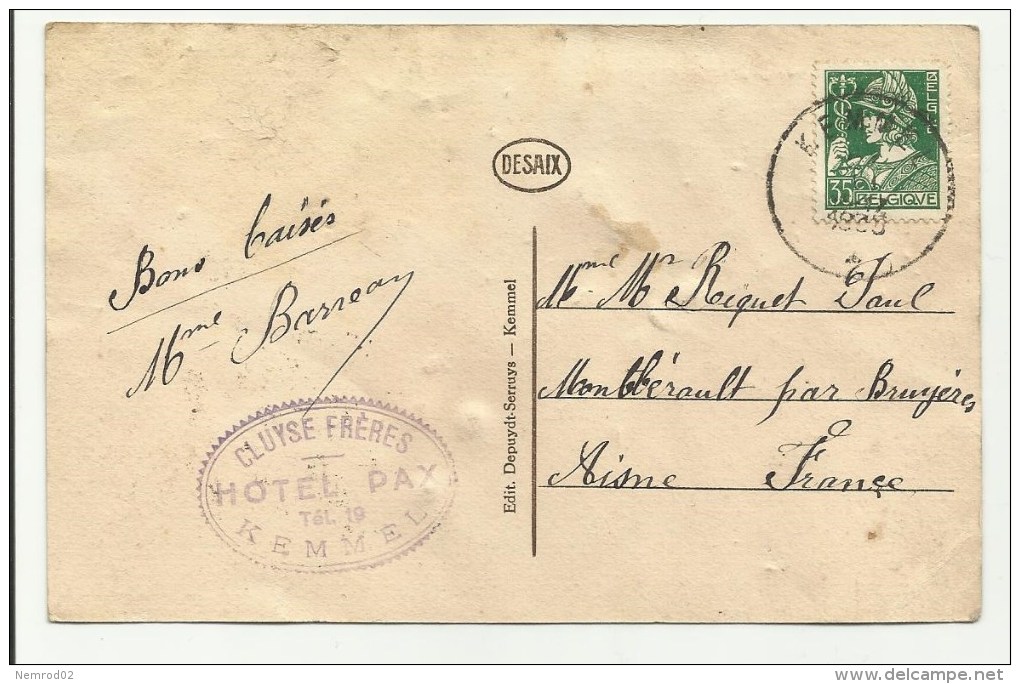 DESAIX
BELGIË
35 BELGIQUE
KEMMEL
Bons baisés
Mme Barreau
Mme Mr Riquet Paul
Montbérault par Bruyères
Aisne France
Edit. Depuydt-Serruys — Kemmel
CLUYSE FRÈRES
HOTEL PAX
Tél. 19
KEMMEL
Nemrod02
delcampe.net